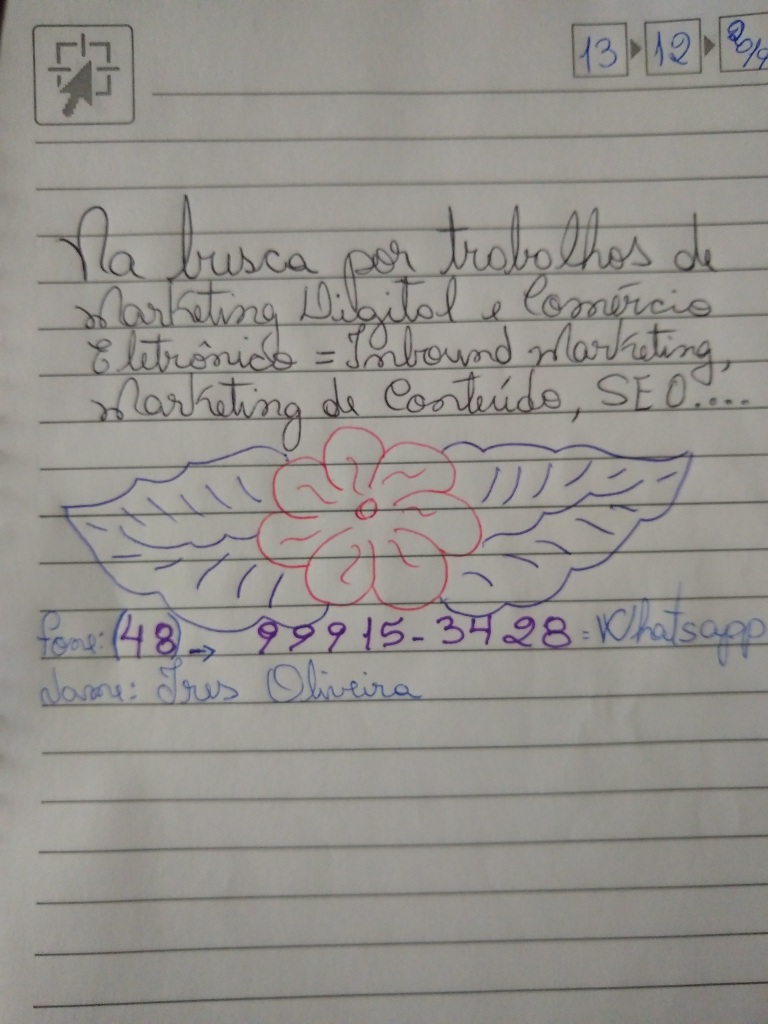 13 12 2019
Na busca por trabalhos de
Marketing Digital e Comércio
Eletrônico = Inbound Marketing,
Marketing de Conteúdo, SEO....
fone: (48) → 99915-3428 = Whatsapp
Name: Ires Oliveira